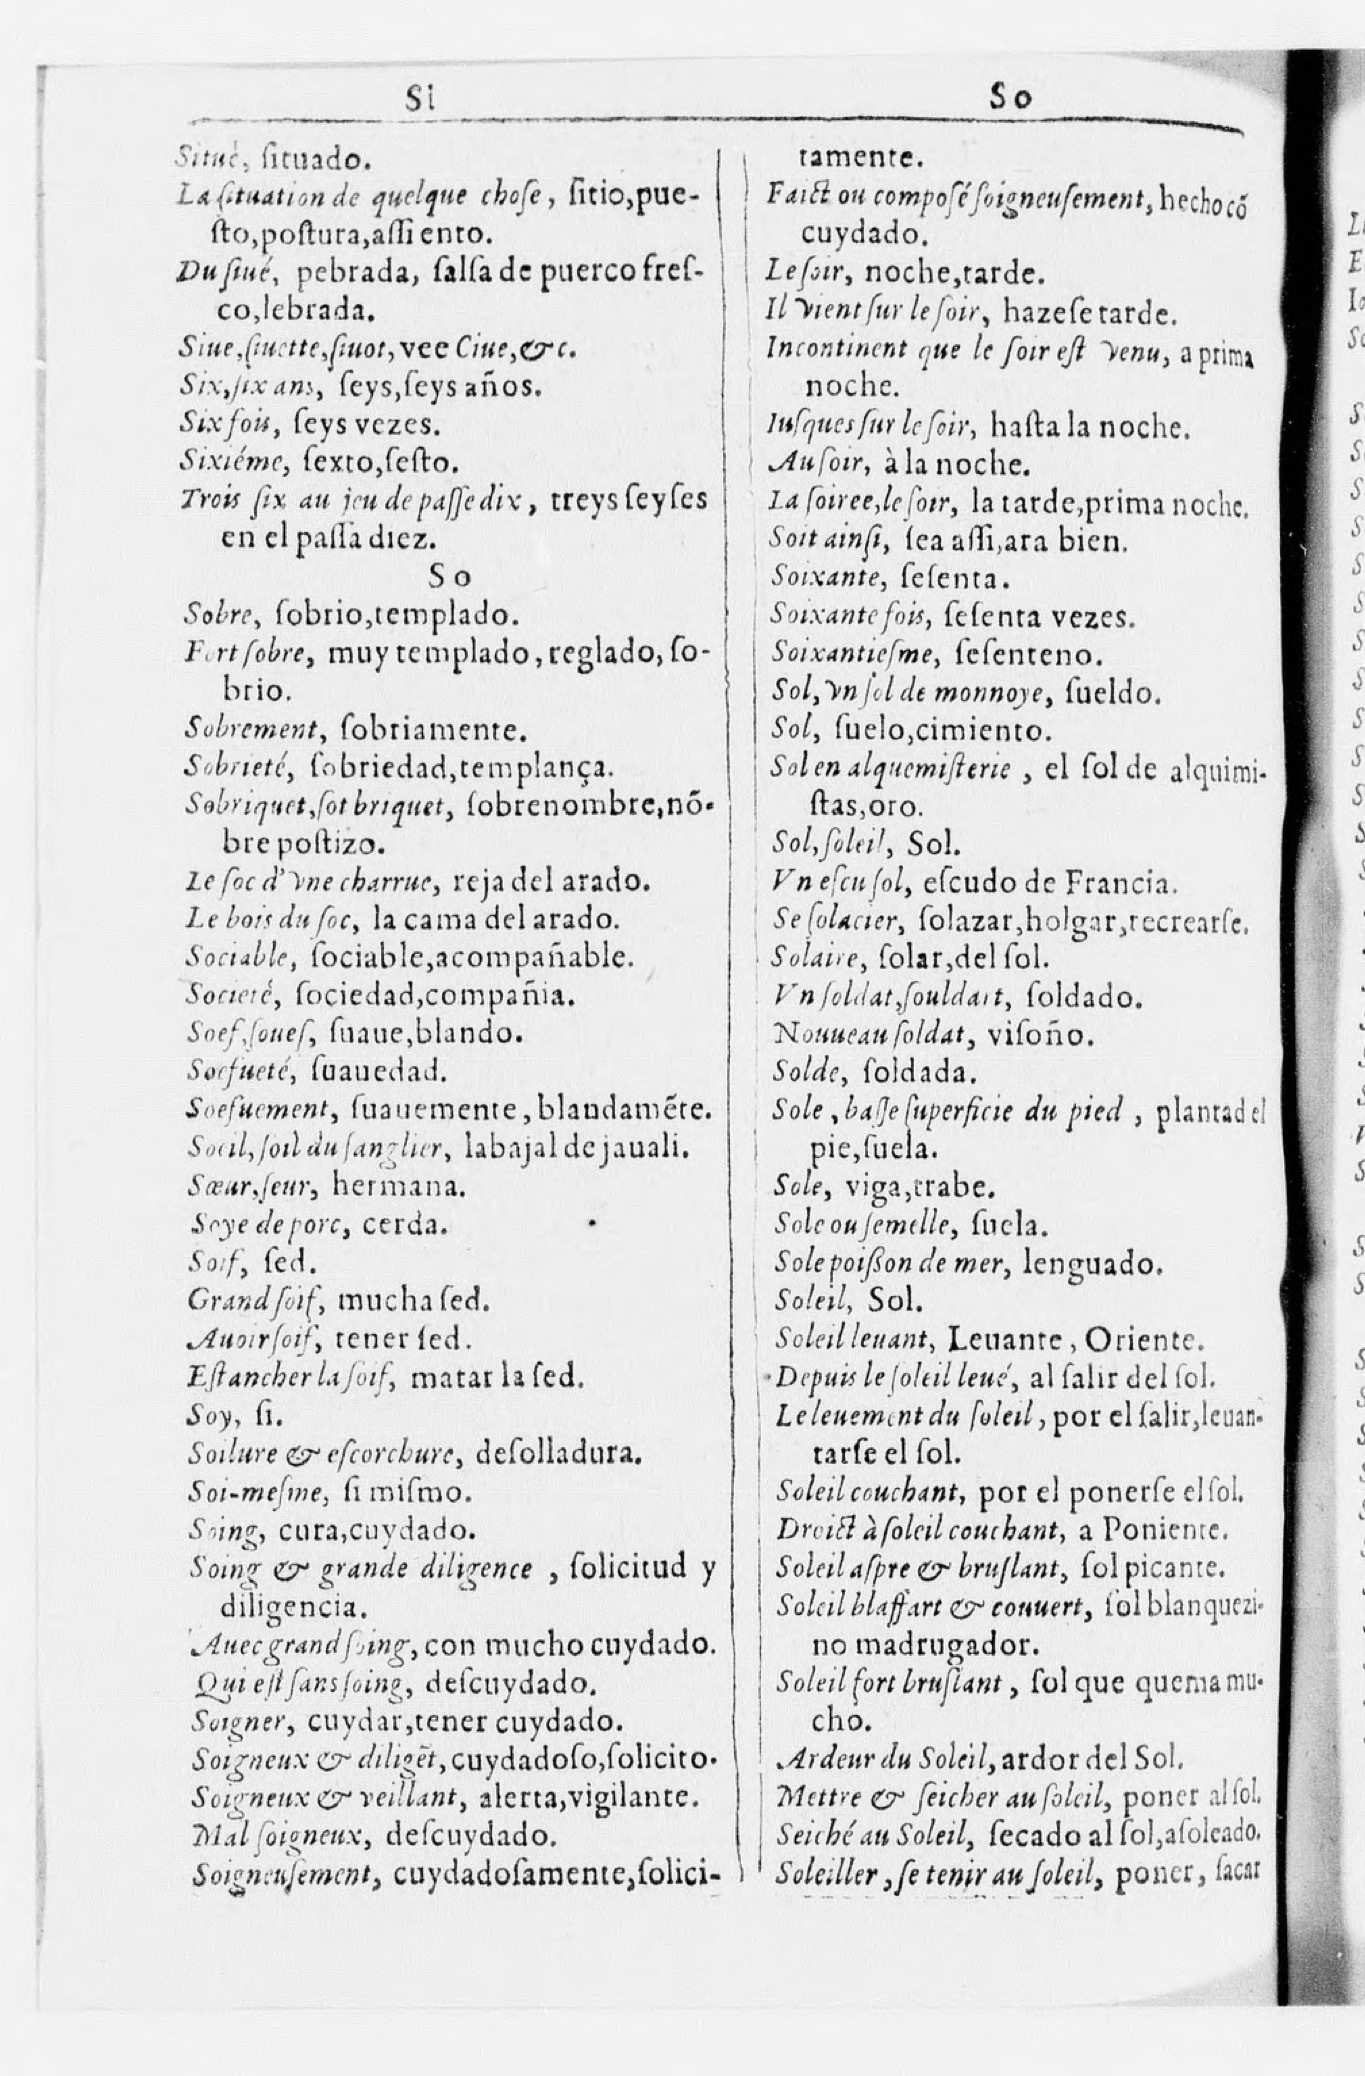 Si
Situé, ſituado.
La ſituation de quelque choſe, ſitio,pue-
ſto,poſtura,aſſiento.
Du ſiué, pebrada, ſalſa de puerco freſ-
co,lebrada.
Siue,ſiuette,ſiuot, vee Ciue,&c.
Six,ſix ans, ſeys,ſeys años.
Six fois, ſeys vezes.
Sixiéme, ſexto,ſeſto.
Trois ſix au jeu de paſſe dix, treys ſeyſes
en el paſſa diez.
So
Sobre, ſobrio,templado.
Fort ſobre, muy templado, reglado, ſo-
brio.
Sobrement, ſobriamente.
Sobrieté, ſobriedad,templança.
Sobriquet,ſot briquet, ſobrenombre,nõ-
bre poſtizo.
Le ſoc d'vne charrue, reja del arado.
Le bois du ſoc, la cama del arado.
Sociable, ſociable,acompañable.
Societé, ſociedad,compañia.
Soef,ſoueſ, ſuaue,blando.
Soefueté, ſuauedad.
Soefuement, ſuauemente, blandamẽte.
Soeil,ſoil du ſanglier, labajal de jauali.
Sœur,ſeur, hermana.
Soye de porc, cerda.
Soif, ſed.
Grand ſoif, mucha ſed.
Auoir ſoif, tener ſed.
Eſtancher la ſoif, matar la ſed.
Soy, ſi.
Soilure & eſcorchure, deſolladura.
Soi-meſme, ſi miſmo.
Soing, cura,cuydado.
Soing & grande diligence, ſolicitud y
diligencia.
Auec grand ſoing, con mucho cuydado.
Qui eſt ſans ſoing, deſcuydado.
Soigner, cuydar,tener cuydado.
Soigneux & diligẽt, cuydadoſo,ſolicito.
Soigneux & veillant, alerta,vigilante.
Mal ſoigneux, deſcuydado.
Soigneuſement, cuydadoſamente,ſolici-
So
tamente.
Faict ou compoſé ſoigneuſement, hecho cõ
cuydado.
Le ſoir, noche,tarde.
Il vient ſur le ſoir, hazeſe tarde.
Incontinent que le ſoir eſt venu, a prima
noche.
Iuſques ſur le ſoir, haſta la noche.
Au ſoir, à la noche.
La ſoiree,le ſoir, la tarde,prima noche.
Soit ainſi, ſea aſſi,ara bien.
Soixante, ſeſenta.
Soixante fois, ſeſenta vezes.
Soixantieſme, ſeſenteno.
Sol, vn ſol de monnoye, ſueldo.
Sol, ſuelo,cimiento.
Sol en alquemiſterie, el ſol de alquimi-
ſtas,oro.
Sol,ſoleil, Sol.
Vn eſcu ſol, eſcudo de Francia.
Se ſolacier, ſolazar,holgar,recrearſe.
Solaire, ſolar,del ſol.
Vn ſoldat,ſouldart, ſoldado.
Nouueau ſoldat, viſoño.
Solde, ſoldada.
Sole, baſſe ſuperficie du pied, planta del
pie,ſuela.
Sole, viga,trabe.
Sole ou ſemelle, ſuela.
Sole poiſſon de mer, lenguado.
Soleil, Sol.
Soleil leuant, Leuante, Oriente.
Depuis le ſoleil leué, al ſalir del ſol.
Le leuement du ſoleil, por el ſalir,leuan-
tarſe el ſol.
Soleil couchant, por el ponerſe el ſol.
Droict à ſoleil couchant, a Poniente.
Soleil aſpre & bruſlant, ſol picante.
Soleil blaffart & couuert, ſol blanquezi-
no madrugador.
Soleil fort bruſlant, ſol que quema mu-
cho.
Ardeur du Soleil, ardor del Sol.
Mettre & ſeicher au ſoleil, poner al ſol.
Seiché au Soleil, ſecado al ſol,aſoleado.
Soleiller, ſe tenir au ſoleil, poner, ſacar